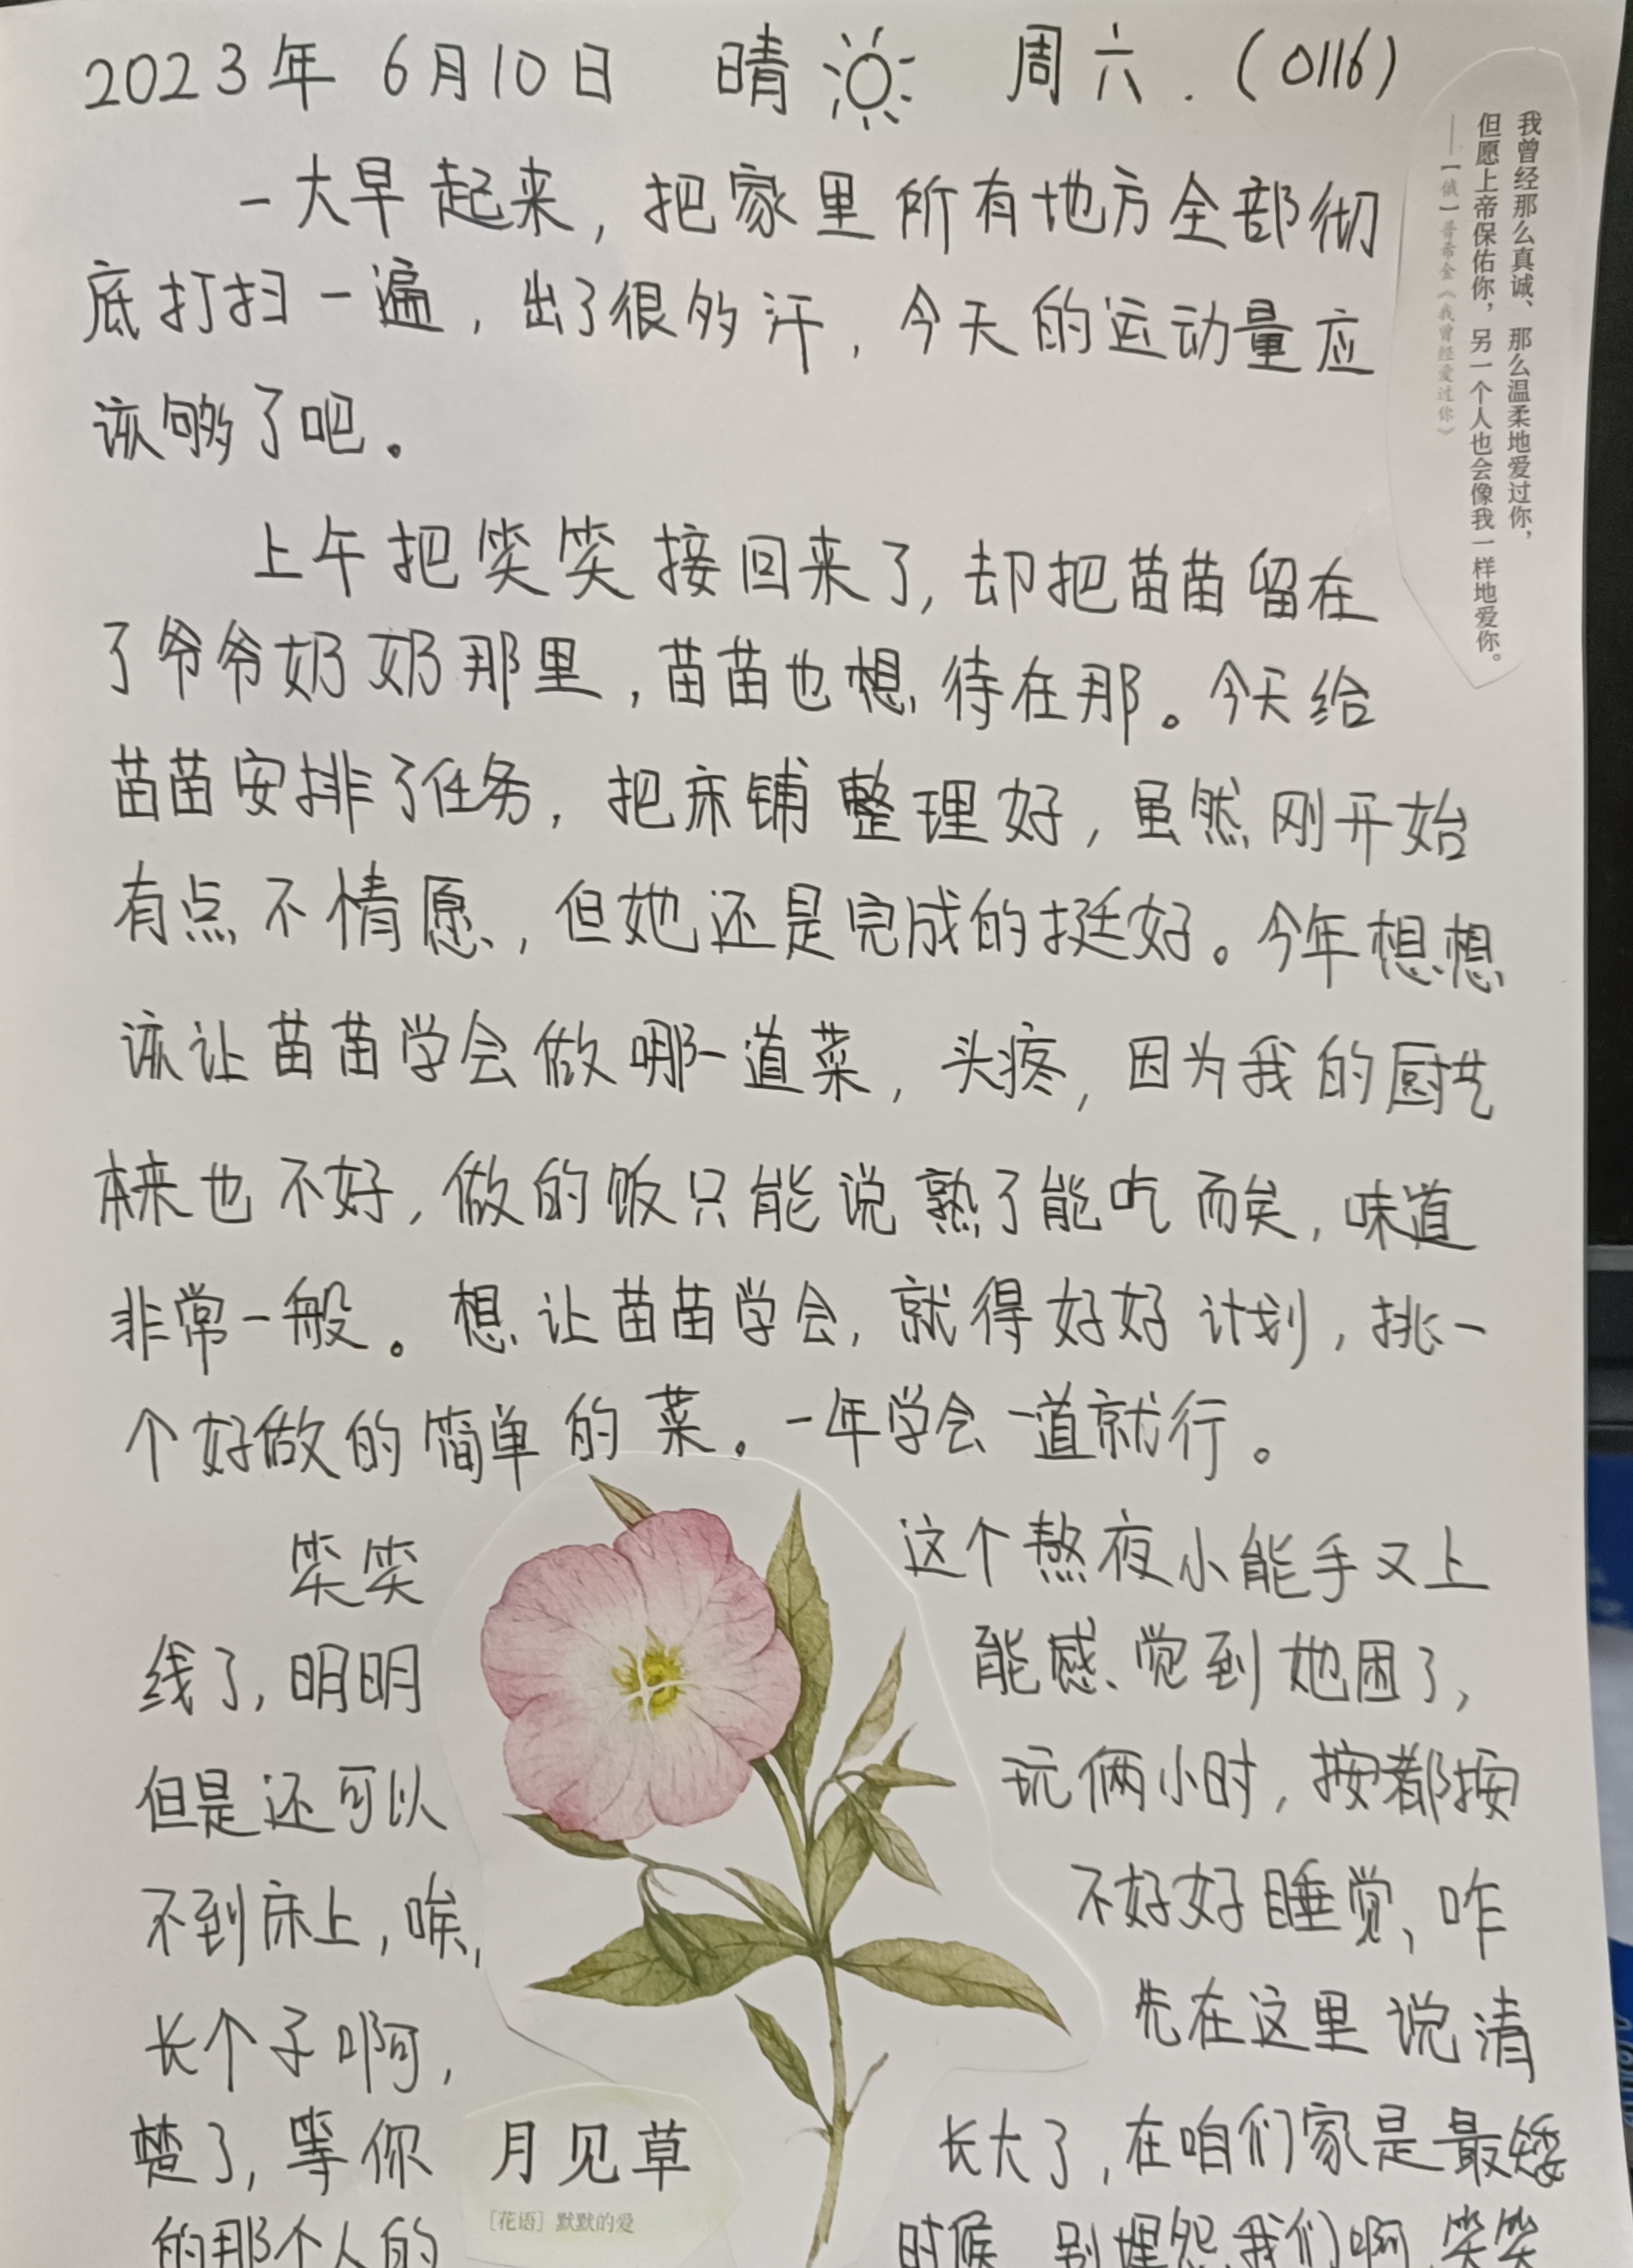 2023年 6月10日 晴 周六.(0116)
一大早起来,把家里所有地方全部彻
底打扫一遍,出了很多汗,今天的运动量应
该够了吧。
上午把笑笑接回来了,却把苗苗留在
了爷爷奶奶那里,苗苗也想待在那。今天给
苗苗安排了任务,把床铺整理好,虽然刚开始
有点不情愿,但她还是完成的挺好。今年想想
该让苗苗学会做哪一道菜,头疼,因为我的厨艺
本来也不好,做的饭只能说熟了能吃而矣,味道
非常一般。想让苗苗学会,就得好好计划,挑一
个好做的简单的菜。一年学会一道就行。
笑笑这个熬夜小能手又上
线了,明明能感觉到她困了,
但是还可以玩俩小时,按都按
不到床上,唉,不好好睡觉,咋
长个子啊,先在这里说清
楚了,等你长大了,在咱们家是最矮
的那个人的时候,别埋怨我们啊,笑笑
我曾经那么真诚、那么温柔地爱过你,
但愿上帝保佑你,另一个人也会像我一样地爱你。
——[俄]普希金《我曾经爱过你》
月见草
[花语]默默的爱